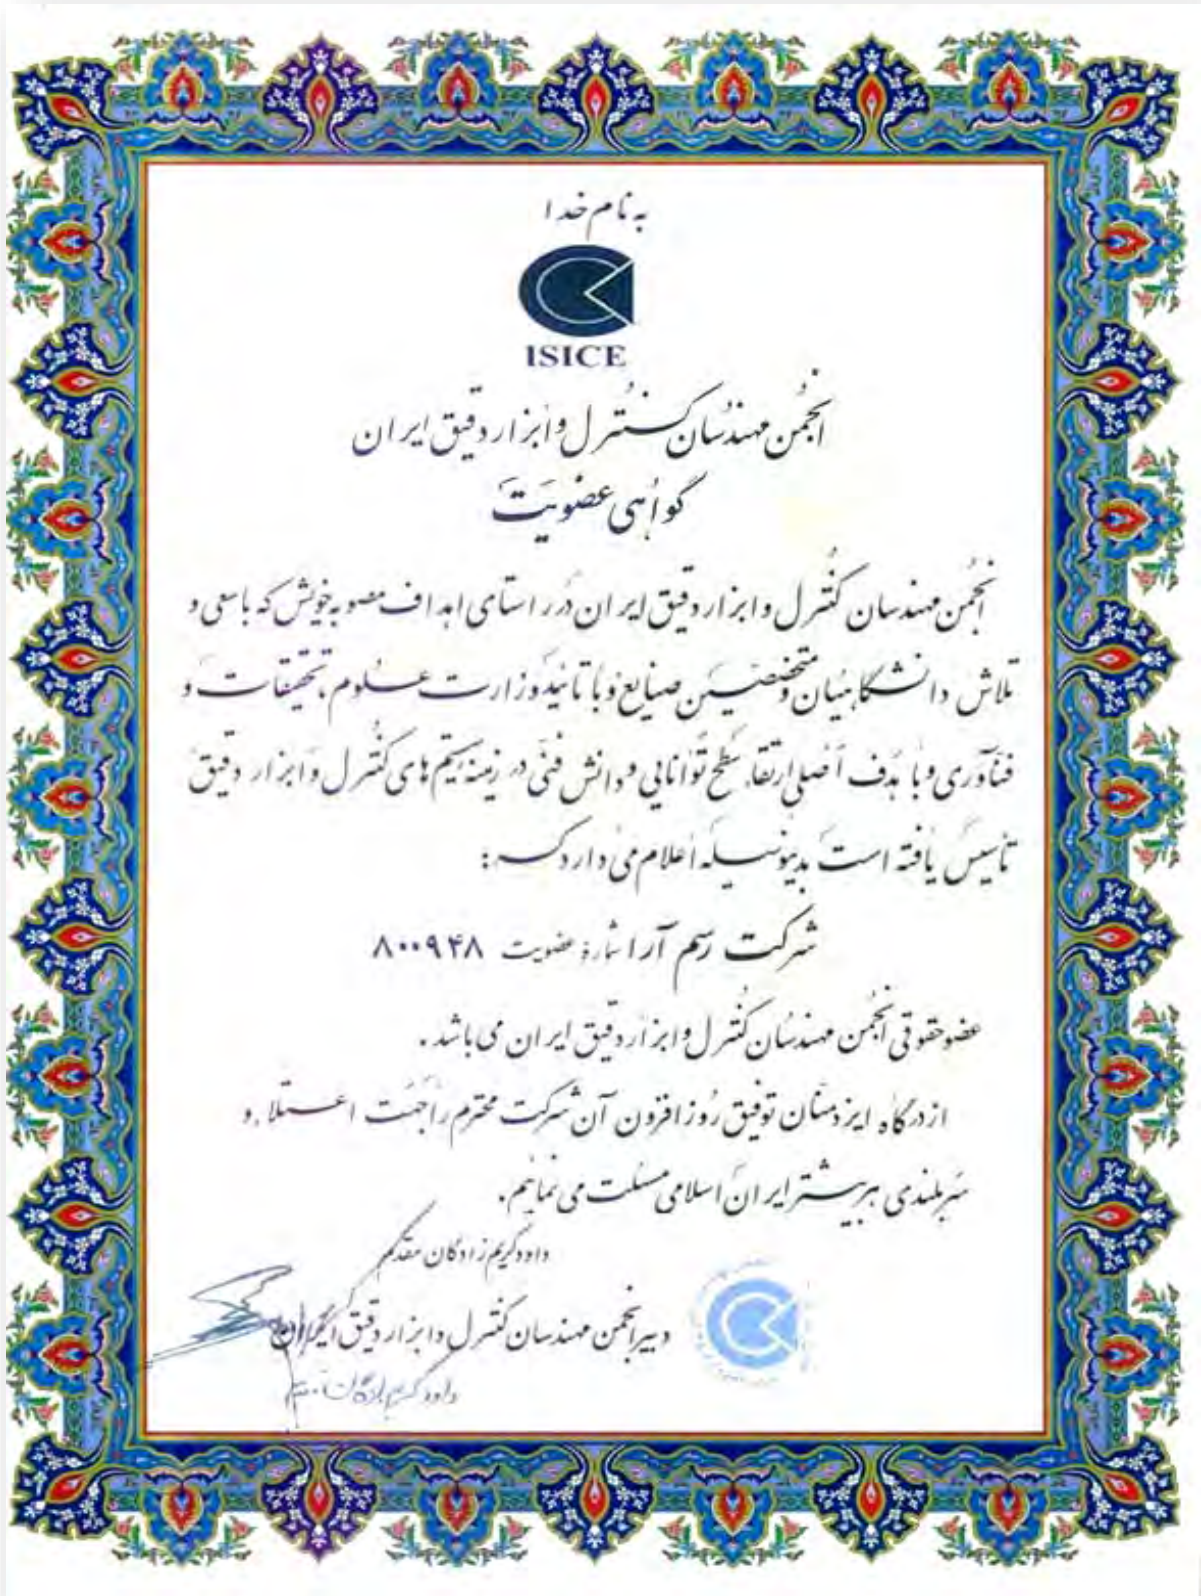 به نام خدا
ISICE
انجمن مهندسان کنترل و ابزار دقیق ایران
گواهی عضویت
انجمن مهندسان کنترل و ابزار دقیق ایران در راستای اهداف مصوبه خویش که با سعی و
تلاش دانشگاهیان و متخصصین صنایع و با تائید وزارت علوم، تحقیقات و
فنآوری و با هدف اصلی ارتقاء سطح توانایی و دانش فنی در زمینه سیستم های کنترل و ابزار دقیق
تاسیس یافته است بدینوسیله اعلام می دارد که :
شرکت رسم آرا شماره عضویت ۸۰۰۹۴۸
عضو حقوقی انجمن مهندسان کنترل و ابزار دقیق ایران می باشد .
از درگاه ایزد منان توفیق روز افزون آن شرکت محترم را جهت اعتلاء و
سربلندی هر بیشتر ایران اسلامی مسئلت می نماییم.
داود کریم زادگان مقدم
دبیر انجمن مهندسان کنترل و ابزار دقیق ایران
داود کریم زادگان مقدم